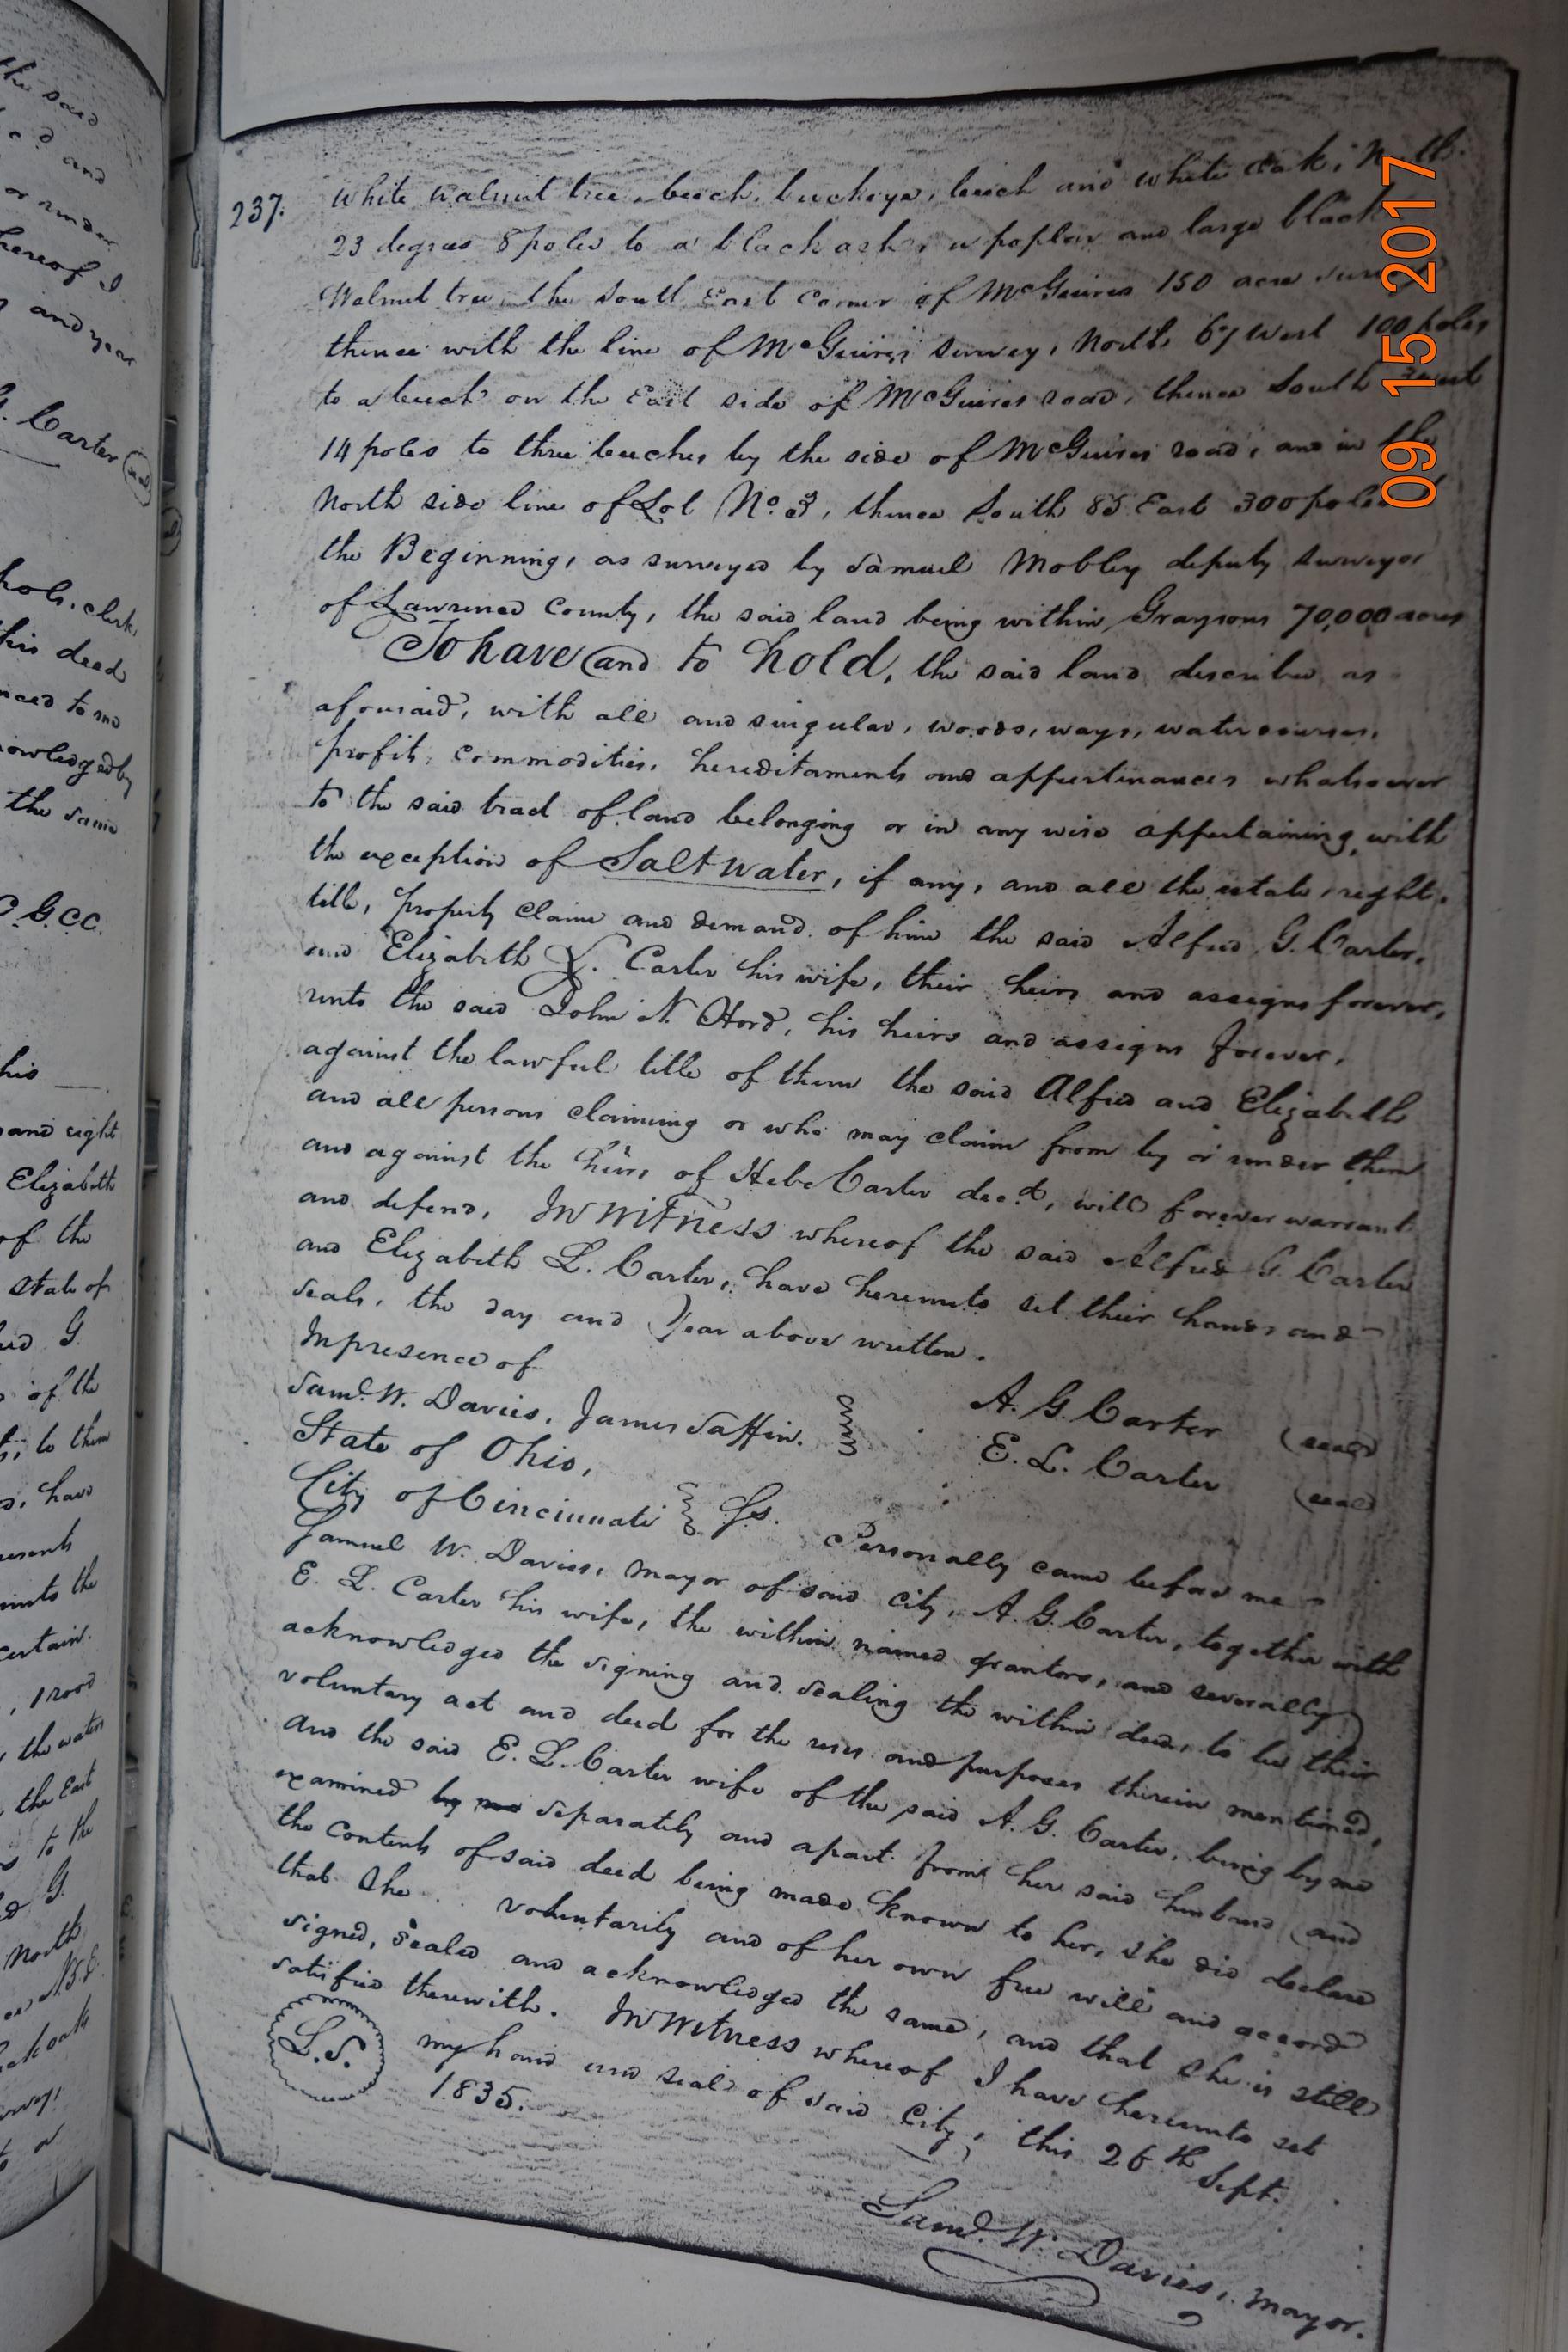 the said
and
or under
hereof I
and year
G. Carter
clerk
his deed
to me
acknowledged by
the same
G.C.C.
his
and right
Elizabeth
of the
State of
G.
of the
to them
have
presents
unto the
certain
1 rood
the waters
the East
to the
G.
North
237.
White walnut tree, beech, buckeye, beech and white oak; North
23 degrees 8 poles to a black ash, a poplar and large black
Walnut tree, the South East corner of McGuires 150 acre
thence with the line of McGuires survey, North 67 West 100 poles
to a beech on the East side of McGuires road, thence South
14 poles to three beeches by the side of McGuires road, and in the
North side line of Lot No. 3, thence South 85 East 300 poles
the Beginning, as surveyed by Samuel Mobley deputy surveyor
of Lawrence County, the said land being within Graysons 70,000 acres
To have and to hold, the said land describe as
aforesaid, with all and singular, woods, ways, watercourses,
profits, commodities, hereditaments and appurtinances whatsoever
to the said tract of land belonging or in any wise appertaining, with
the exception of Salt water, if any, and all the estate, right,
title, property claim and demand of him the said Alfred G. Carter,
and Elizabeth L. Carter his wife, their heirs and assigns forever,
unto the said John N. Hord, his heirs and assigns forever,
against the lawful title of them the said Alfred and Elizabeth
and all persons claiming or who may claim from by or under them
and against the heirs of Hebe Carter decd, will forever warrant
and defend, In Witness whereof the said Alfred G. Carter
and Elizabeth L. Carter, have hereunto set their hands and
seals, the day and year above written.
In presence of
Saml. W. Davies, James Saffin. A. G. Carter (seal)
State of Ohio, E. L. Carter (seal)
City of Cincinnati } Ss. Personally came before me
Samuel W. Davies, mayor of said city, A. G. Carter, together with
E. L. Carter his wife, the within named grantors, and severally
acknowledged the signing and sealing the within deed, to be their
voluntary act and deed for the uses and purposes therein mentioned,
and the said E. L. Carter wife of the said A. G. Carter, being by me
examined by me separately and apart from her said husband and
the contents of said deed being made known to her, she did declare
that she voluntarily and of her own free will and accord
signed, sealed and acknowledged the same, and that she is still
satisfied therewith. In Witness whereof I have hereunto set
L.S. my hand and seal of said city, this 26th Sept.
1835.
Saml. W. Davies, Mayor.
09 15 2017